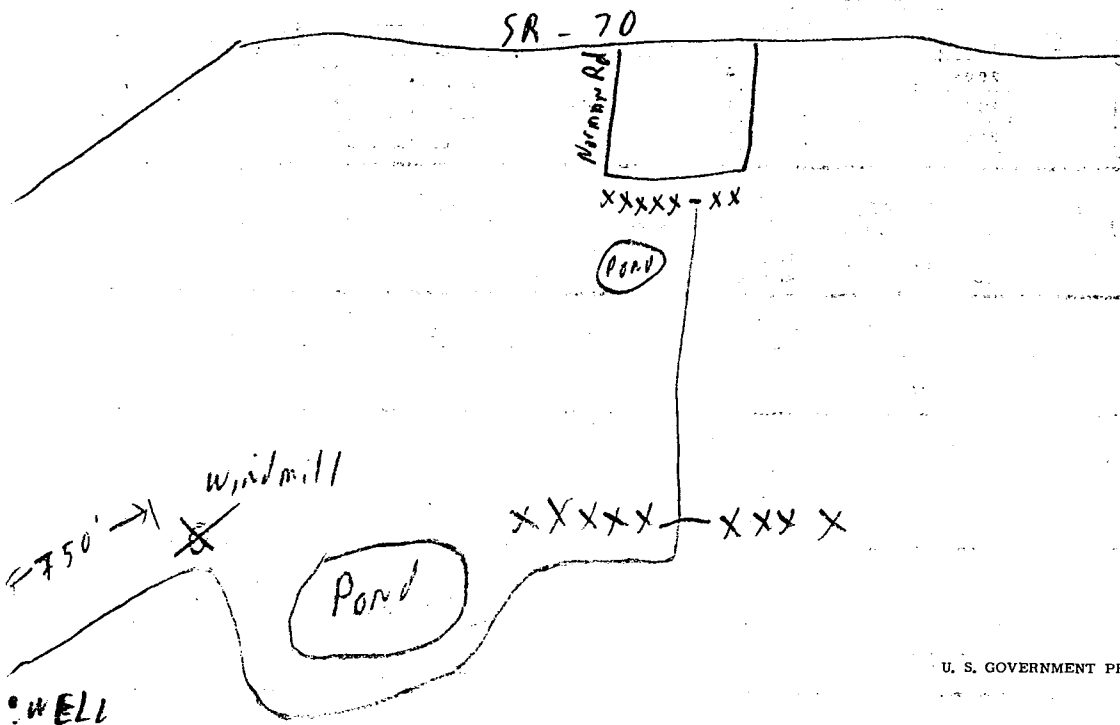 SR - 70
Norman Rd
XXXXX - XX
Pond
Windmill
750'
XXXXX - XXX X
Pond
U. S. GOVERNMENT
WELL